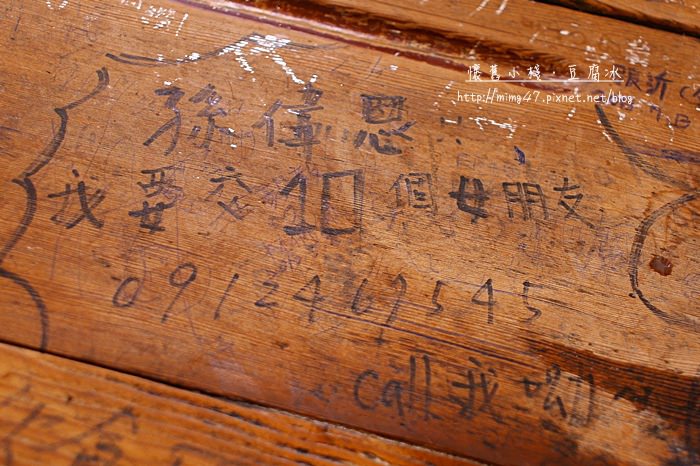 懷舊小棧．豆腐冰
http://mimg47.pixnet.net/blog
孫偉恩
我要交10個女朋友
0912469545
call我呦